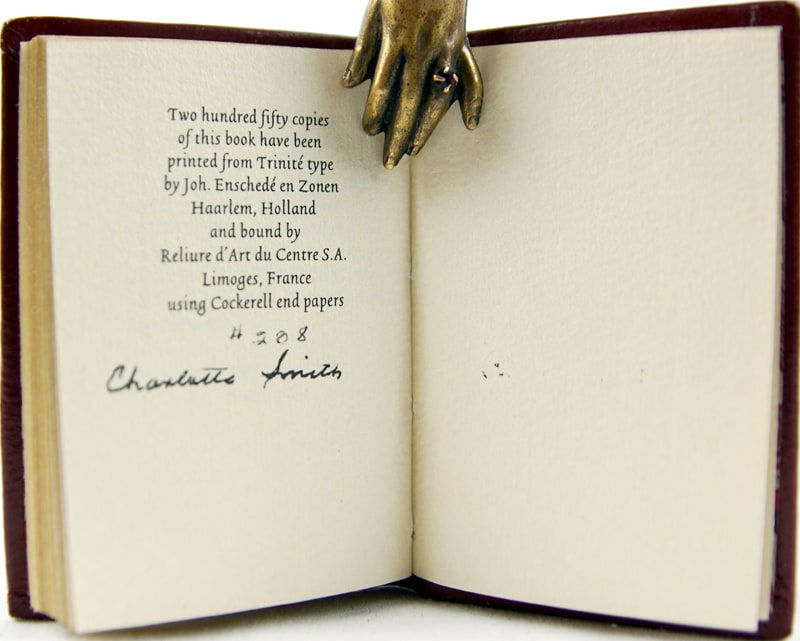 Two hundred fifty copies
of this book have been
printed from Trinité type
by Joh. Enschedé en Zonen
Haarlem, Holland
and bound by
Reliure d'Art du Centre S.A.
Limoges, France
using Cockerell end papers
# 208
Charlotte Smith